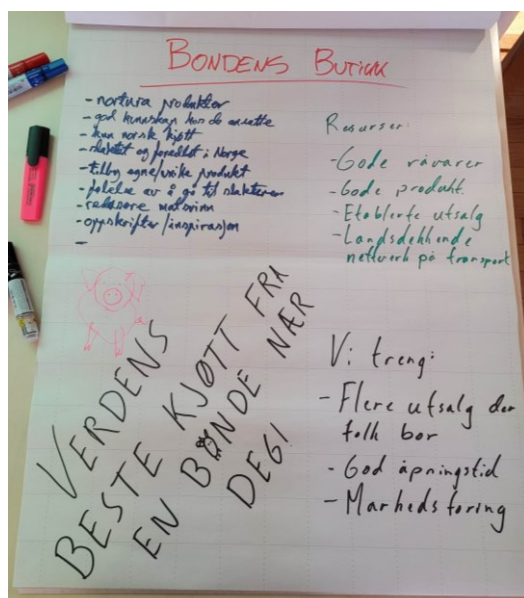 BONDENS BUTIKK
- nortura produkter
- god kunnskap hos de ansatte
- kun norsk kjøtt
- slaktet og foredlet i Norge
- tilby egne/unike produkt
- følelse av å gå til slakteren
- redusere matsvinn
- oppskrifter/inspirasjon
-
Resurser:
- Gode råvarer
- Gode produkt
- Etablerte utsalg
- Landsdekkende
nettverk på transport
VERDENS
BESTE KJØTT FRA
EN BONDE NÆR
DEG!
Vi treng:
- Flere utsalg der
folk bor
- God åpningstid
- Markedsføring